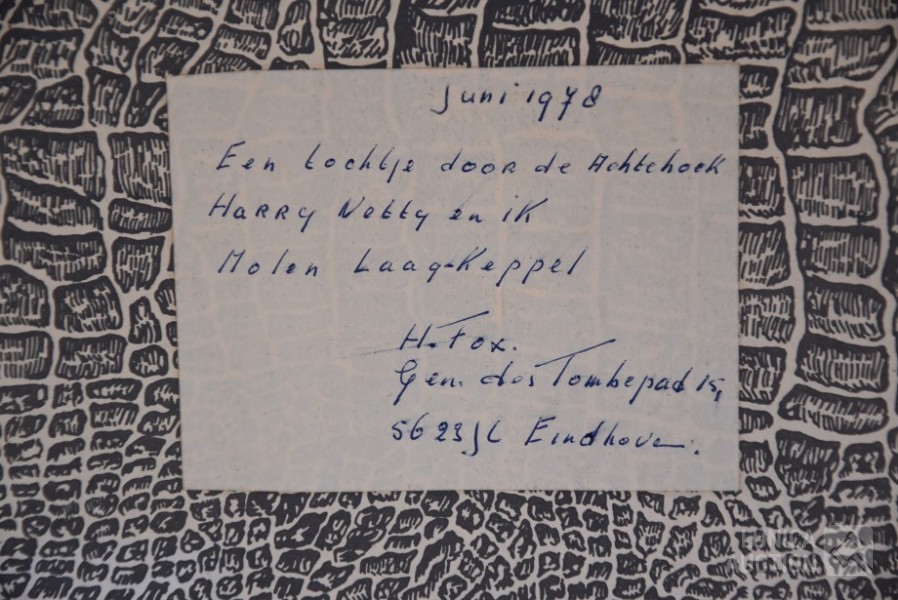 Juni 1978
Een tochtje door de Achtehoek
Harry Netty en ik
Molen Laag-Keppel
H. Fox.
Gen. des Tombepad 15,
5623 JL Eindhoven.